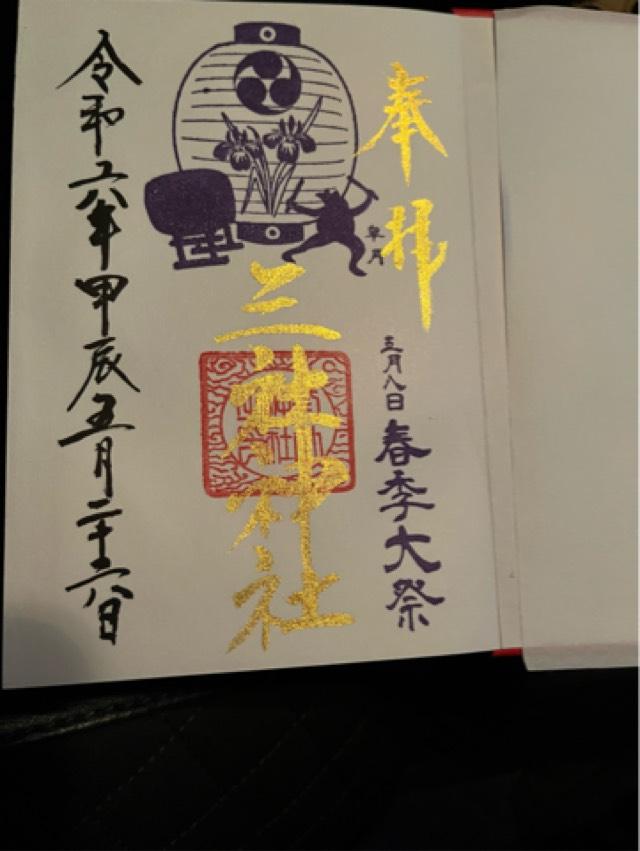 奉拝
皐月
五月八日 春季大祭
三社神社
令和六年甲辰五月二十六日